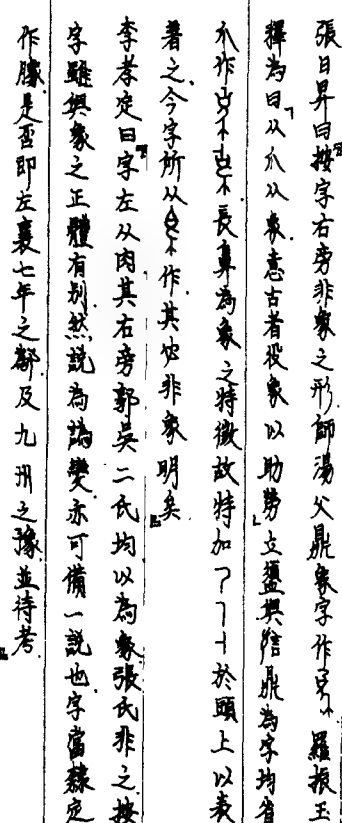 張日昇曰「按字右旁非象之形師湯父鼎象字作 羅振玉
釋為曰「从爪从象意古者役象以助勞」立盨與 鼎為字均省
爪作 長鼻為象之特徵故特加 於頭上以表
著之今字所从 作其必非象明矣」
李孝定曰「字左从肉其右旁郭吳二氏均以為象張氏非之按
字雖與象之正體有別然説為譌變亦可備一説也字當隸定
作䑃是否即左襄七年之鄬及九州之豫並待考」